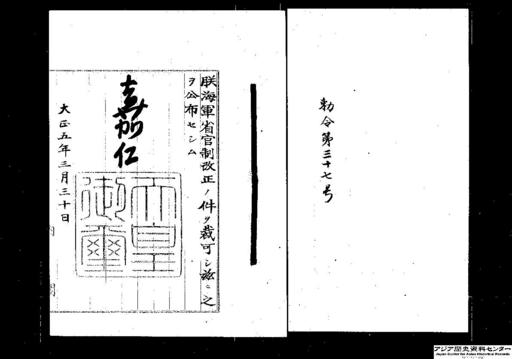 勅令第三十七号
朕海軍省官制改正ノ件ヲ裁可シ茲ニ之
ヲ公布セシム
嘉仁
天皇
御璽
大正五年三月三十日
アジア歴史資料センター
Japan Center for Asian Historical Records